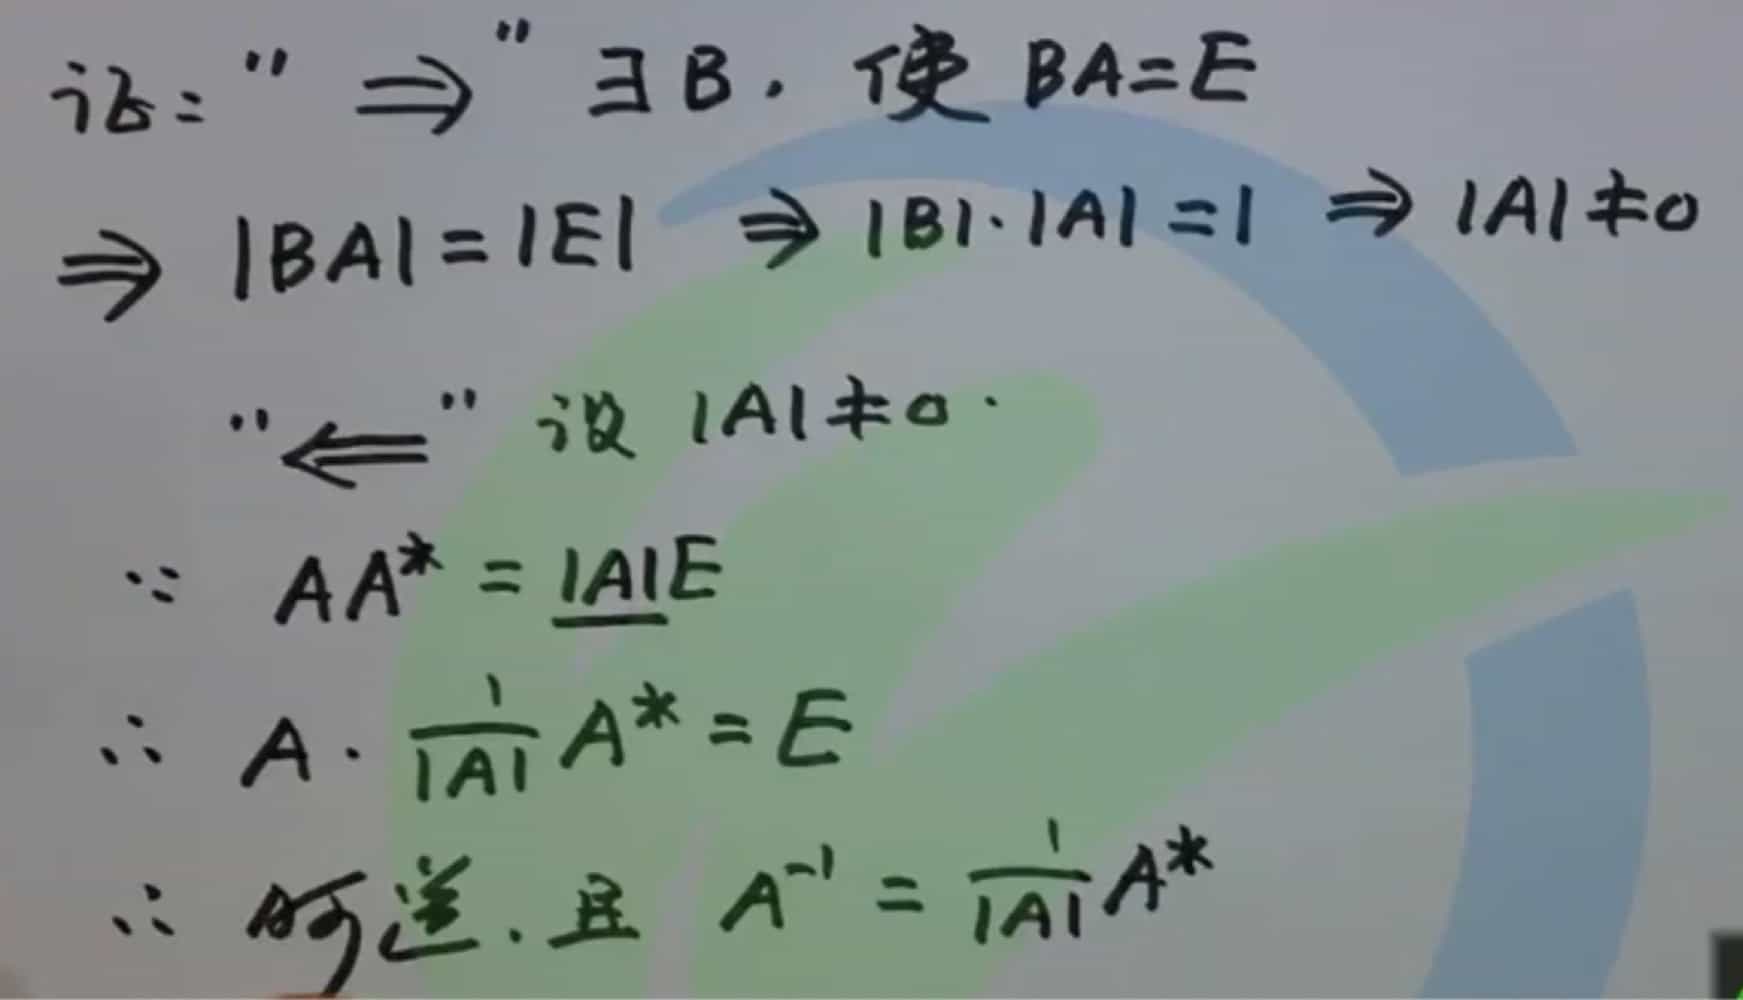 证: "⇒" ∃B. 使 BA=E
⇒ |BA|=|E| ⇒ |B|·|A|=1 ⇒ |A|≠0
"⇐" 设 |A|≠0.
∵ AA* = |A|E
∴ A · 1/|A| A* = E
∴ A可逆. 且 A⁻¹ = 1/|A| A*